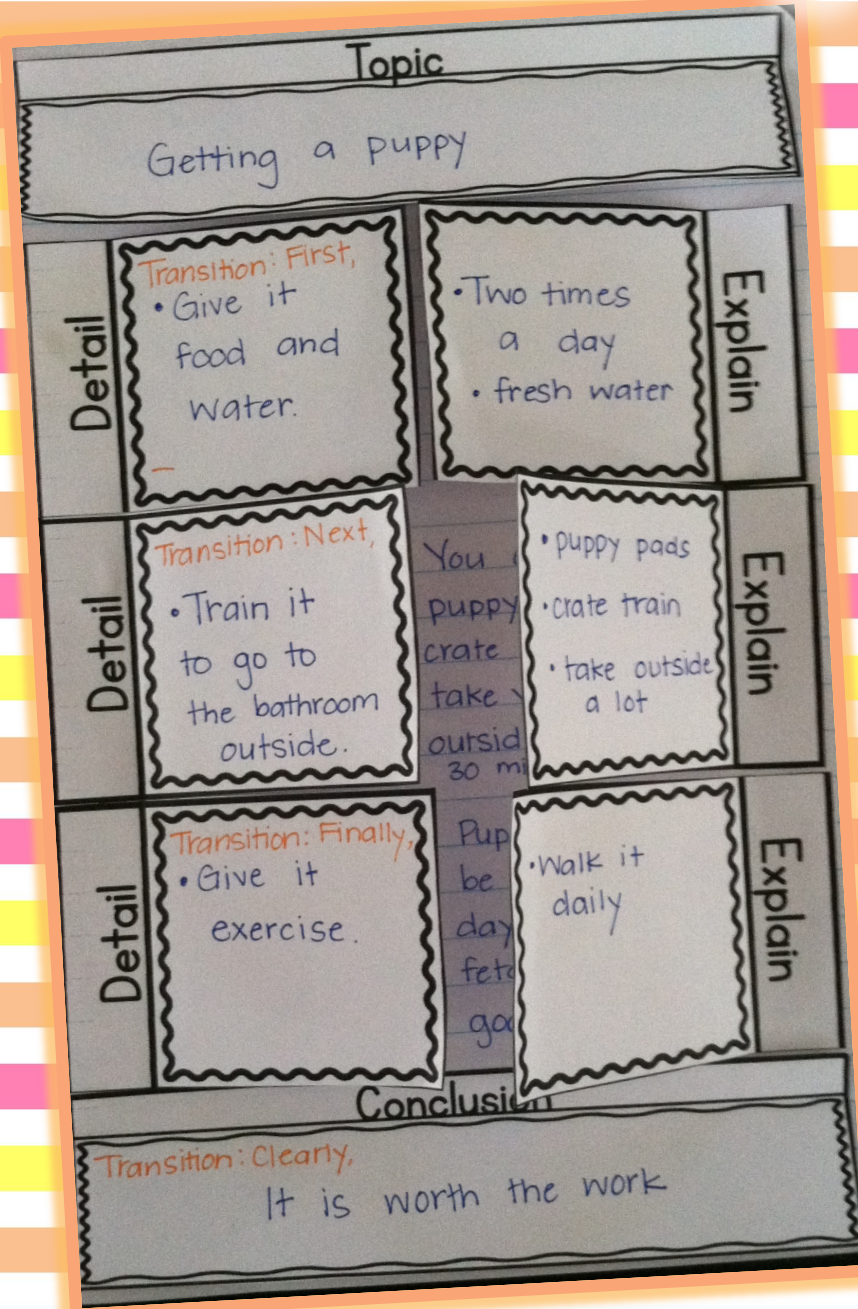 Topic
Getting a puppy
Detail
Transition: First,
• Give it
food and
water.
• Two times
a day
• fresh water
Explain
Detail
Transition: Next,
• Train it
to go to
the bathroom
outside.
You
puppy
crate
take
30 mi
• puppy pads
• crate train
• take outside
a lot
Explain
Detail
Transition: Finally,
• Give it
exercise.
be
day
• Walk it
daily
Explain
Conclusion
Transition: Clearly,
It is worth the work